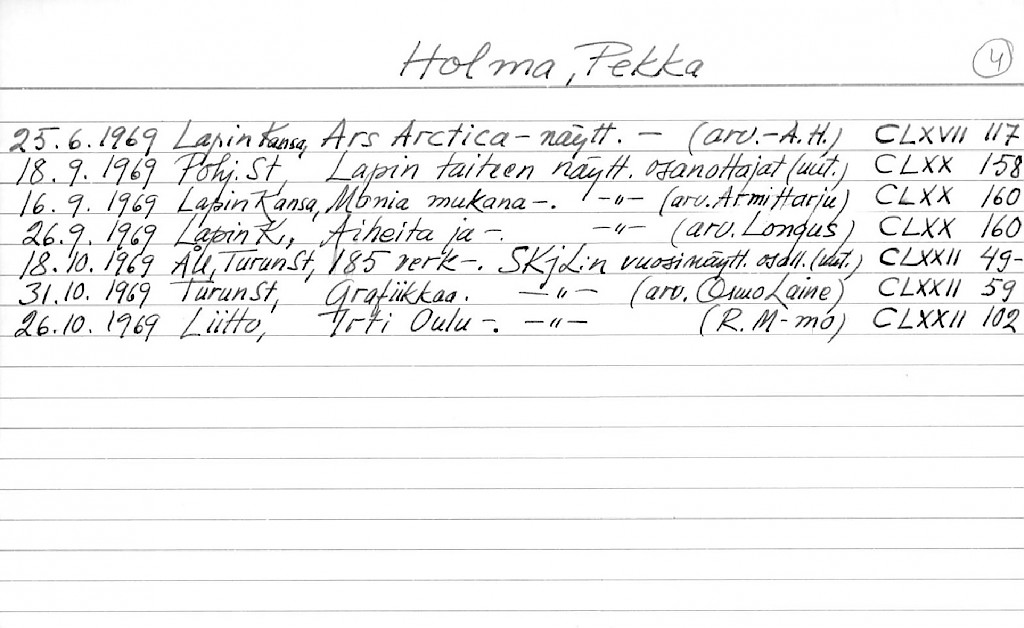 Holma, Pekka 4
25.6.1969 Lapin Kansa, Ars Arctica - näytt. - (arv. - A.H.) CLXVII 117
18.9.1969 Pohj. St, Lapin taiteen näytt. osanottajat (uut.) CLXX 158
16.9.1969 Lapin Kansa, Monia mukana -. -"- (arv. Armi Harju) CLXX 160
26.9.1969 Lapin K, Aiheita ja -. -"- (arv. Longus) CLXX 160
18.10.1969 ÅU, Turun St, 185 verk -. SKjL:n vuosinäytt. osall. (uut.) CLXXII 49-
31.10.1969 Turun St, Grafiikkaa. -"- (arv. Osmo Laine) CLXXII 59
26.10.1969 Liitto, Irti Oulu -. -"- (R. M-mo) CLXXII 102